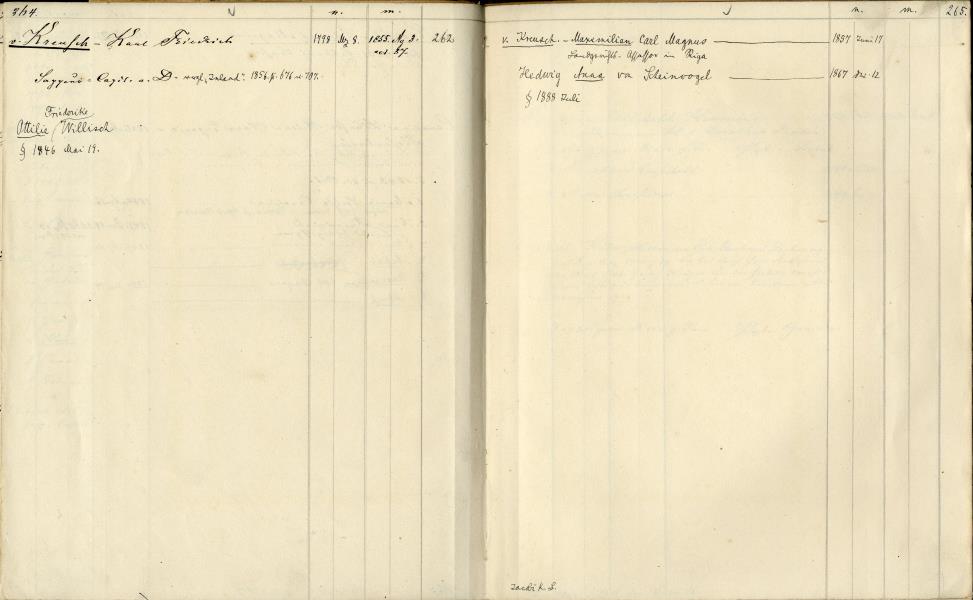 264.
n. m.
v. Kreusch - Karl Friedrich 1798 Mz 8. 1855. Ap. 2. 262
aet. 57.
Capit. a. D. 1856. p. 676 u. 707.
Friederike
Ottilie Willisch
§ 1846 Mai 19.
n. m. 265.
v. Kreusch - Maximilian Carl Magnus 1837 Juni 17
Landgerichts-Assessor in Riga
Hedwig Anna von Scheinvogel 1867 Dez. 12
§ 1888 Juli